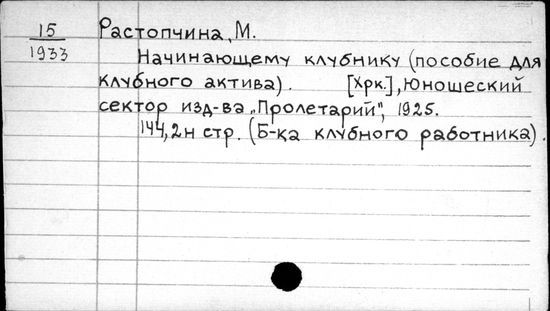 15
1933
Растопчина, М.
Начинающему клубнику (пособие для
клубного актива). [Хрк.], Юношеский
сектор изд-ва „Пролетарий", 1925.
144, 2н стр. (Б-ка клубного работника).